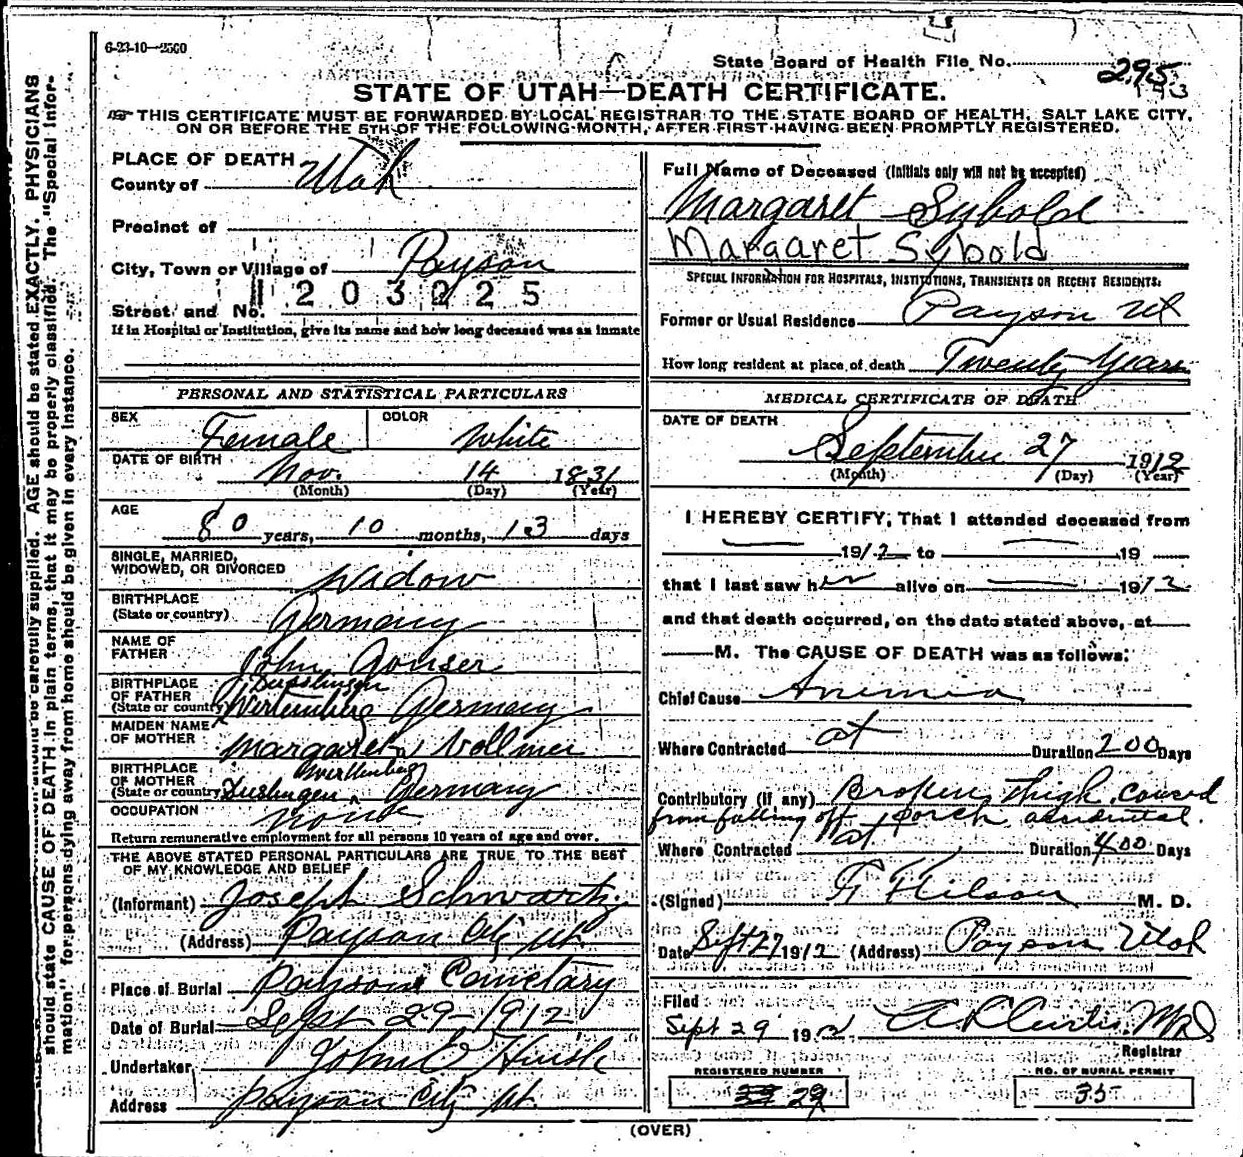 6-23-10-2500
State Board of Health File No. 295
193
STATE OF UTAH—DEATH CERTIFICATE.
THIS CERTIFICATE MUST BE FORWARDED BY LOCAL REGISTRAR TO THE STATE BOARD OF HEALTH, SALT LAKE CITY,
ON OR BEFORE THE 5TH OF THE FOLLOWING MONTH, AFTER FIRST HAVING BEEN PROMPTLY REGISTERED.
should be carefully supplied. AGE should be stated EXACTLY. PHYSICIANS
should state CAUSE OF DEATH in plain terms, that it may be properly classified. The "Special Infor-
mation" for persons dying away from home should be given in every instance.
PLACE OF DEATH
County of Utah
Precinct of
City, Town or Village of Payson
1203025
Street and No.
If in Hospital or Institution, give its name and how long deceased was as inmate
PERSONAL AND STATISTICAL PARTICULARS
SEX Female COLOR White
DATE OF BIRTH Nov. 14 1831
(Month) (Day) (Year)
AGE
80 years, 10 months, 13 days
SINGLE, MARRIED,
WIDOWED, OR DIVORCED Widow
BIRTHPLACE
(State or country) Germany
NAME OF
FATHER John Gonser
BIRTHPLACE
OF FATHER
(State or country) Wirtemberg Germany
MAIDEN NAME
OF MOTHER Margareta Vollmer
BIRTHPLACE
OF MOTHER
(State or country) Duslingen Germany
OCCUPATION none
Return remunerative employment for all persons 10 years of age and over.
THE ABOVE STATED PERSONAL PARTICULARS ARE TRUE TO THE BEST
OF MY KNOWLEDGE AND BELIEF
(Informant) Joseph Schwartz
(Address) Payson City Ut.
Place of Burial Payson Cemetary
Date of Burial Sept 29 1912
Undertaker John E Huish
Address Payson City Ut.
Full Name of Deceased (Initials only will not be accepted)
Margaret Sybold
Margaret Sybold
SPECIAL INFORMATION FOR HOSPITALS, INSTITUTIONS, TRANSIENTS OR RECENT RESIDENTS:
Former or Usual Residence Payson Ut
How long resident at place of death Twenty Years
MEDICAL CERTIFICATE OF DEATH
DATE OF DEATH
September 27 1912
(Month) (Day) (Year)
I HEREBY CERTIFY, That I attended deceased from
1912 to 19
that I last saw her alive on 1912
and that death occurred, on the date stated above, at
M. The CAUSE OF DEATH was as follows:
Chief Cause Anemia
Where Contracted at Duration 200 Days
Contributory (if any) Broken thigh caused
from falling off porch accidental.
Where Contracted at Duration 400 Days
(Signed) M. D.
Date Sept 27 1912 (Address) Payson Utah
Filed
Sept 29 1912 A. L. Curtis. M.D.
Registrar
REGISTERED NUMBER
29
NO. OF BURIAL PERMIT
35
(OVER)